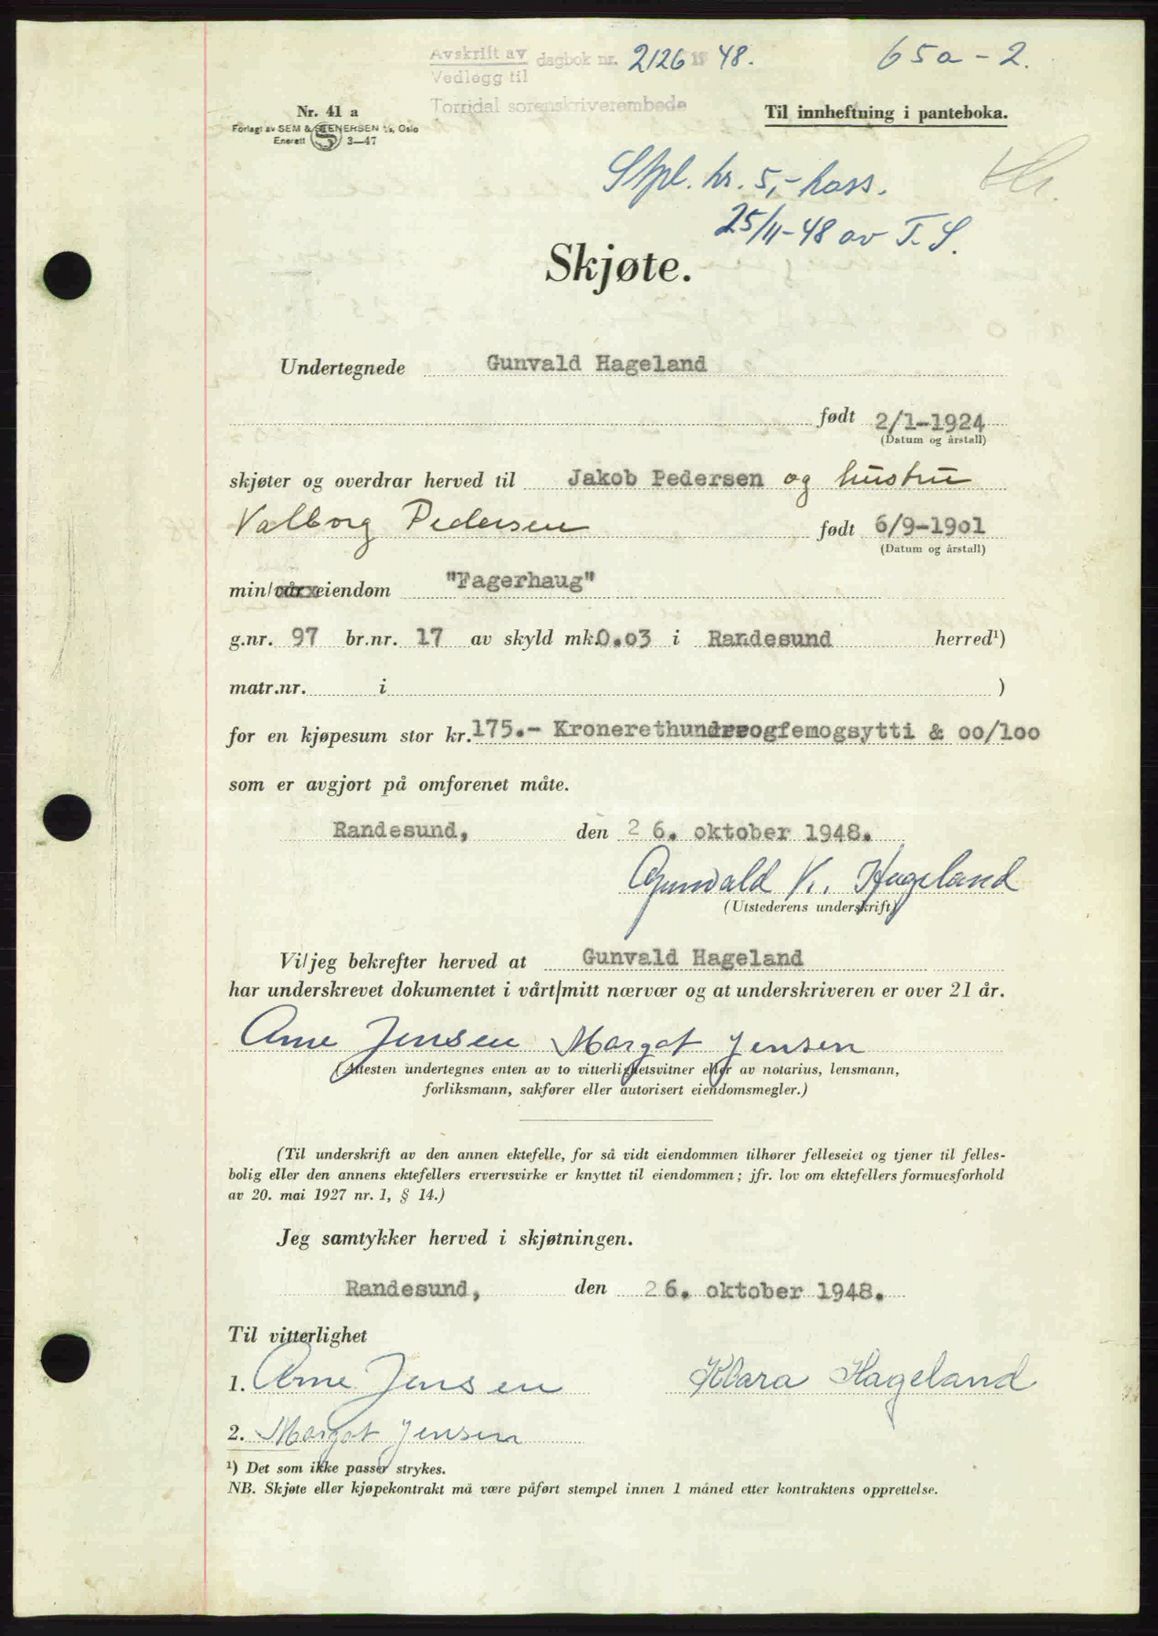 Avskrift av dagbok nr. 2126 19 48.
Vedlegg til
Torridal sorenskriverembede
65a-2.
Nr. 41 a
Forlagt av SEM & STENERSEN A/S, Oslo
Enerett S 3—47
Til innheftning i panteboka.
Stpl. kr. 5,- kass.
25/11-48 av T.S.
Skjøte.
Undertegnede Gunvald Hageland
født 2/1-1924
(Datum og årstall)
skjøter og overdrar herved til Jakob Pedersen og hustru
Valborg Pedersen født 6/9-1901
(Datum og årstall)
min/vår eiendom "Fagerhaug"
g.nr. 97 br.nr. 17 av skyld mk. 0.03 i Randesund herred¹)
matr.nr. i )
for en kjøpesum stor kr. 175.- Kronerethundreogfemogsytti & 00/100
som er avgjort på omforenet måte.
Randesund, den 26. oktober 1948.
Gunvald K. Hageland
(Utstederens underskrift)
Vi/jeg bekrefter herved at Gunvald Hageland
har underskrevet dokumentet i vårt/mitt nærvær og at underskriveren er over 21 år.
Arne Jensen Margot Jensen
(Attesten undertegnes enten av to vitterlighetsvitner eller av notarius, lensmann,
forliksmann, sakfører eller autorisert eiendomsmegler.)
(Til underskrift av den annen ektefelle, for så vidt eiendommen tilhører felleseiet og tjener til felles-
bolig eller den annens ektefellers ervervsvirke er knyttet til eiendommen; jfr. lov om ektefellers formuesforhold
av 20. mai 1927 nr. 1, § 14.)
Jeg samtykker herved i skjøtningen.
Randesund, den 26. oktober 1948.
Til vitterlighet
1. Arne Jensen Klara Hageland
2. Margot Jensen
¹) Det som ikke passer strykes.
NB. Skjøte eller kjøpekontrakt må være påført stempel innen 1 måned etter kontraktens opprettelse.